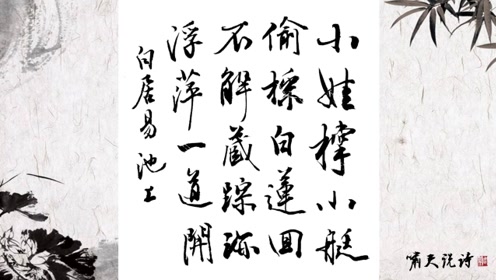 小娃撑小艇
偷採白莲回
不解藏踪跡
浮萍一道開
白居易池上
啸天说诗